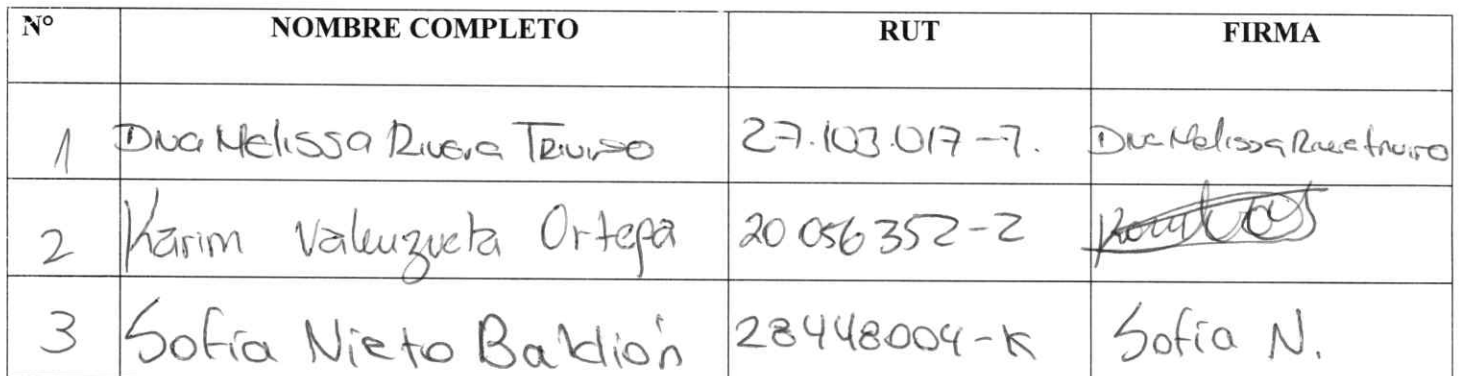 N° NOMBRE COMPLETO RUT FIRMA
1 Diva Melissa Rivera Triviño 27.103.017-7. Diva Melissa Rivera Triviño
2 Karim Valenzuela Ortega 20 056 352-2
3 Sofía Nieto Baldión 28448004-K Sofía N.